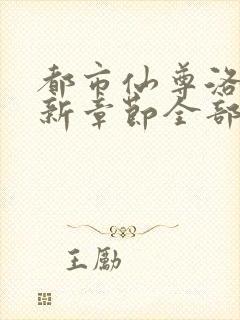 都市仙尊洛
新章節全部
王勵